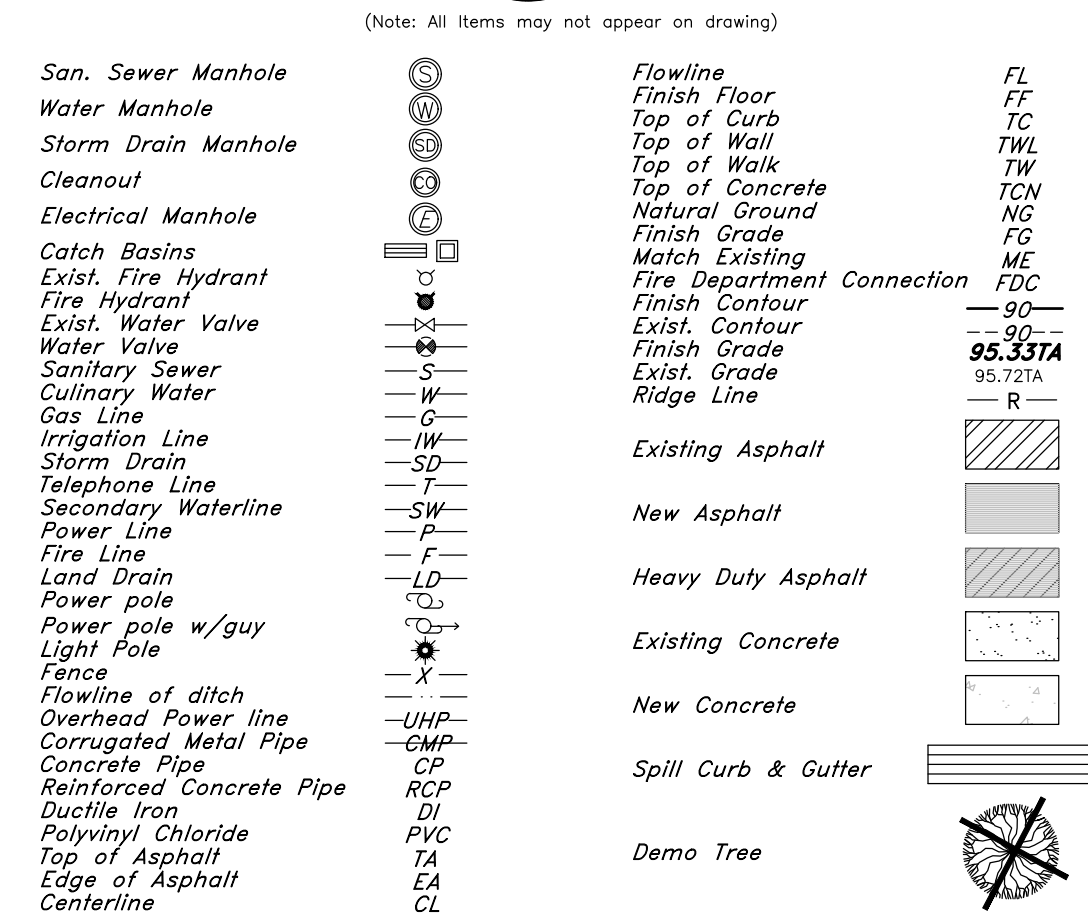 (Note: All Items may not appear on drawing)
San. Sewer Manhole S
Water Manhole W
Storm Drain Manhole SD
Cleanout CO
Electrical Manhole E
Catch Basins
Exist. Fire Hydrant
Fire Hydrant
Exist. Water Valve
Water Valve
Sanitary Sewer S
Culinary Water W
Gas Line G
Irrigation Line IW
Storm Drain SD
Telephone Line T
Secondary Waterline SW
Power Line P
Fire Line F
Land Drain LD
Power pole
Power pole w/guy
Light Pole
Fence X
Flowline of ditch
Overhead Power line UHP
Corrugated Metal Pipe CMP
Concrete Pipe CP
Reinforced Concrete Pipe RCP
Ductile Iron DI
Polyvinyl Chloride PVC
Top of Asphalt TA
Edge of Asphalt EA
Centerline CL
Flowline FL
Finish Floor FF
Top of Curb TC
Top of Wall TWL
Top of Walk TW
Top of Concrete TCN
Natural Ground NG
Finish Grade FG
Match Existing ME
Fire Department Connection FDC
Finish Contour 90
Exist. Contour 90
Finish Grade 95.33TA
Exist. Grade 95.72TA
Ridge Line R
Existing Asphalt
New Asphalt
Heavy Duty Asphalt
Existing Concrete
New Concrete
Spill Curb & Gutter
Demo Tree